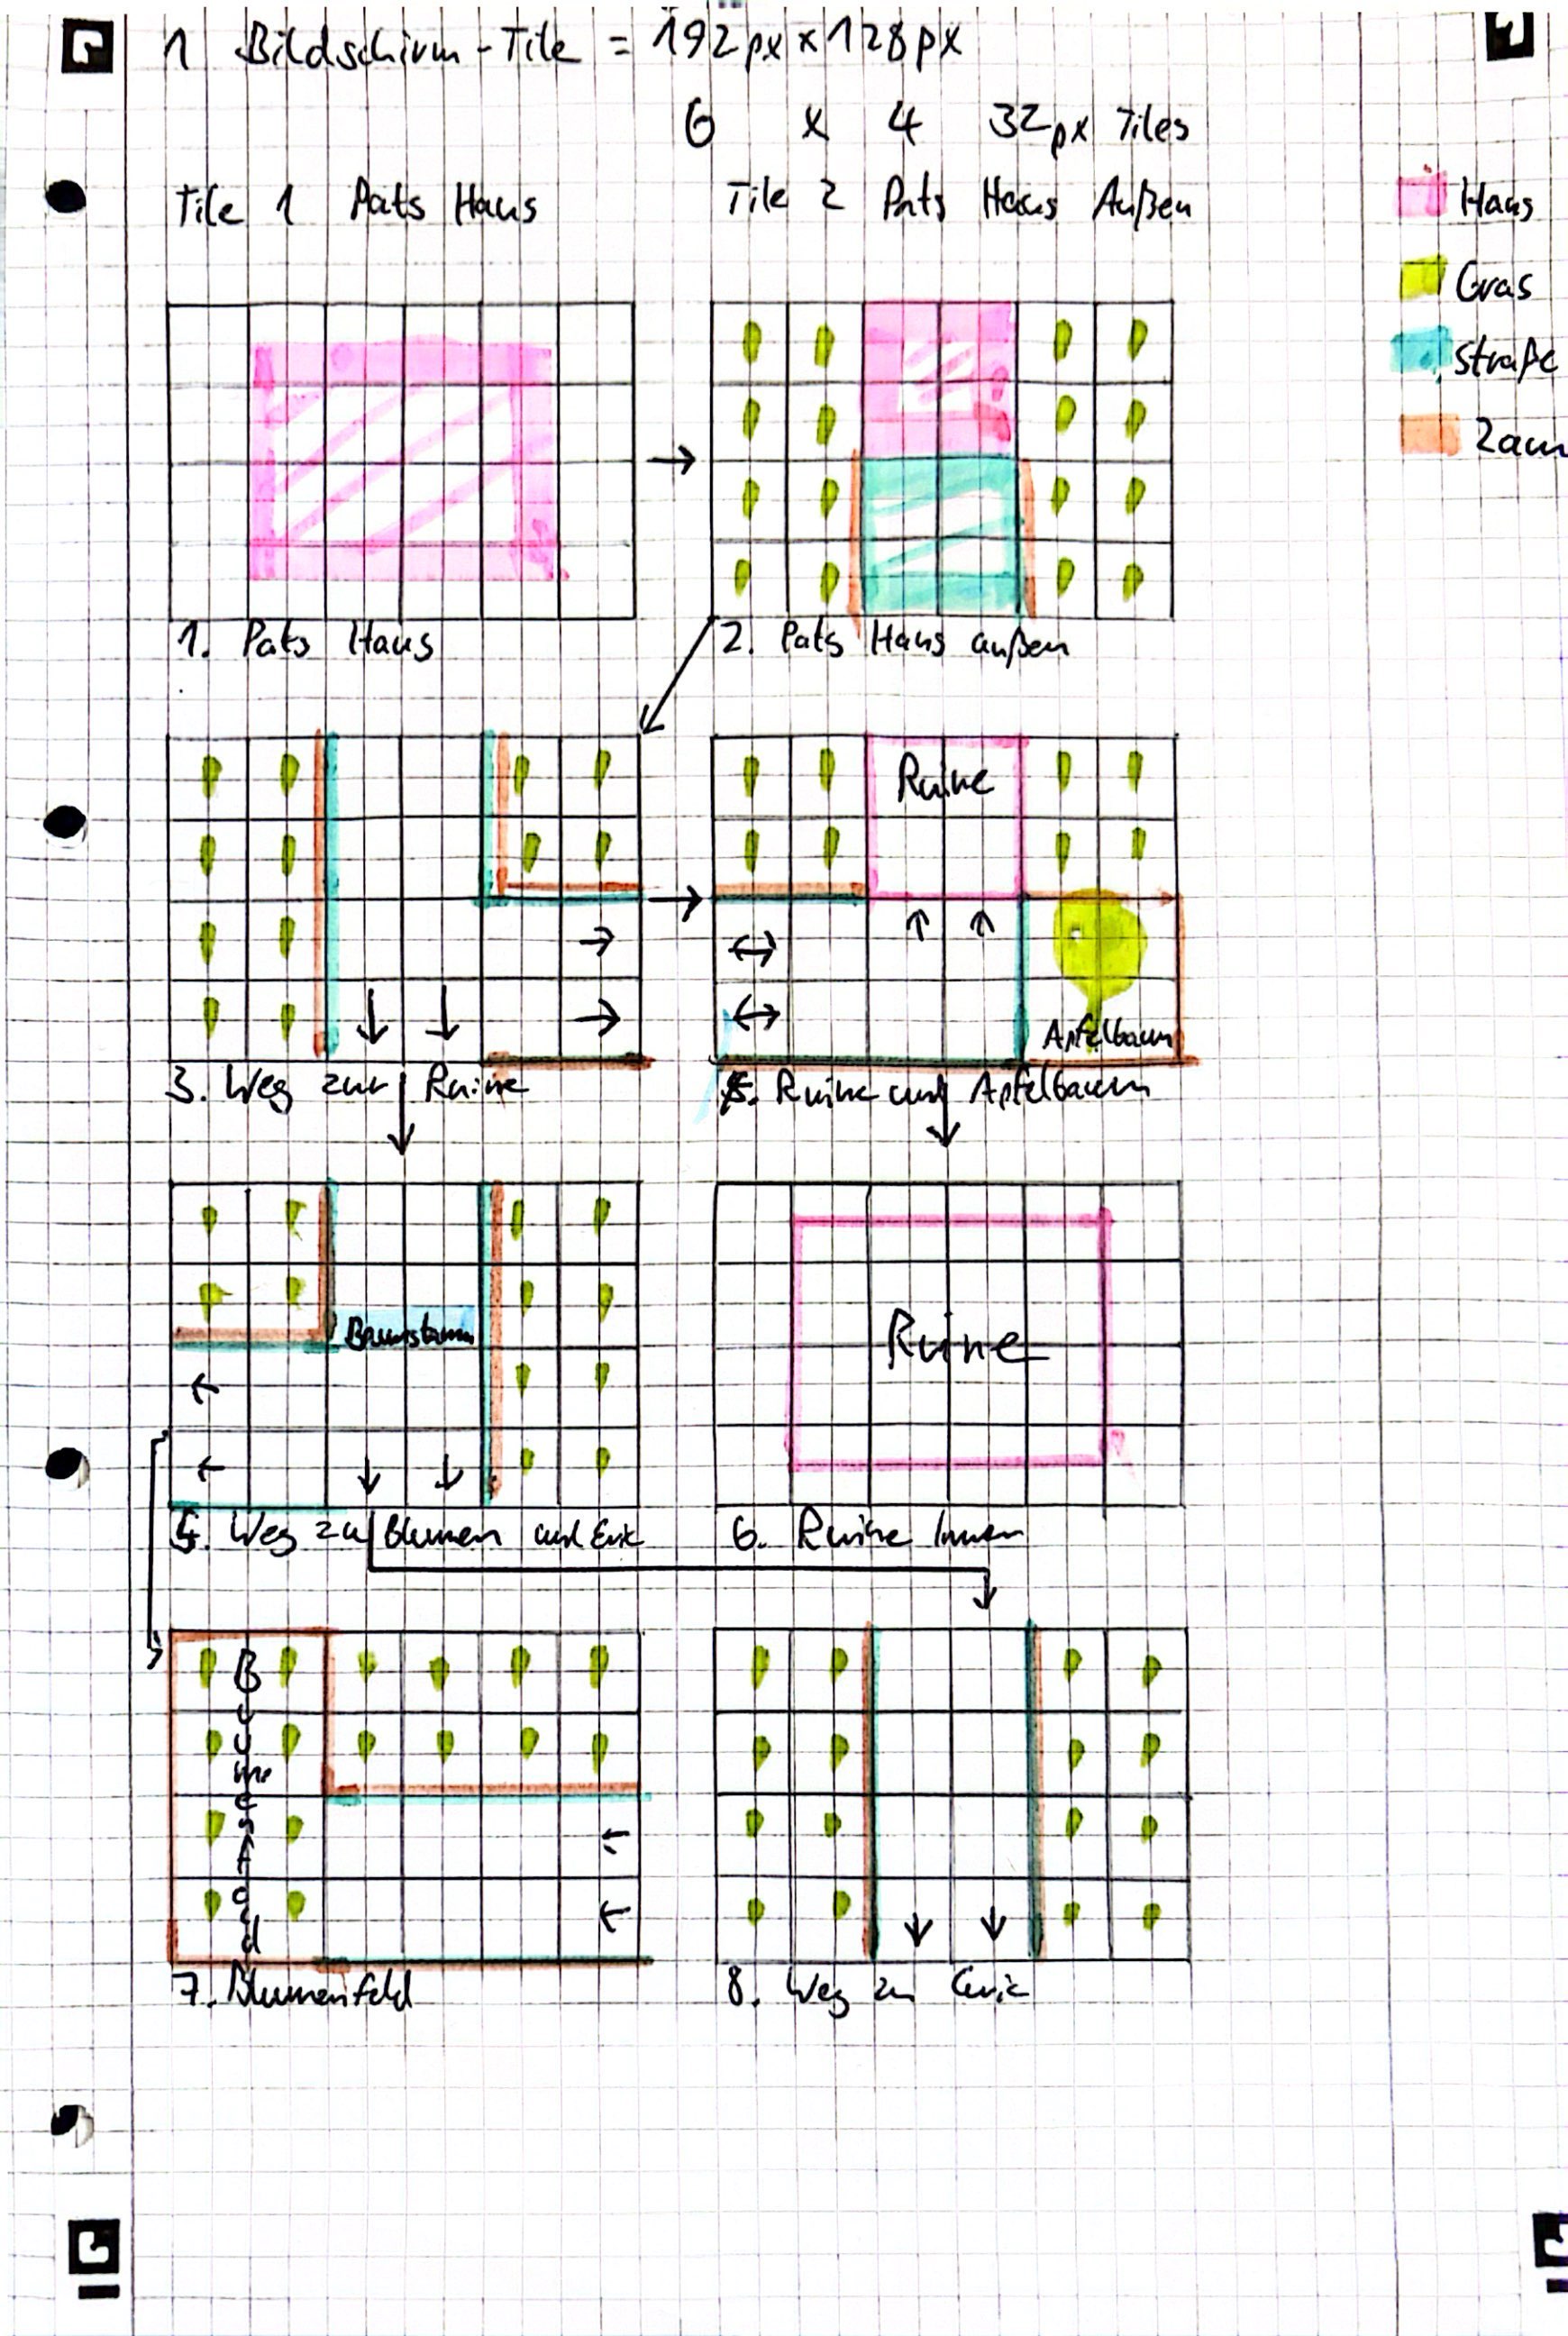 1 Bildschirm-Tile = 192px x 128px
6 x 4 32px Tiles
Tile 1 Pats Haus
Tile 2 Pats Haus Außen
Haus
Gras
Straße
Zaun
1. Pats Haus
2. Pats Haus außen
Ruine
Apfelbaum
3. Weg zur Ruine
5. Ruine und Apfelbaum
Baumstamm
Ruine
4. Weg zu Blumen und Eric
6. Ruine Innen
7. Blumenfeld
8. Weg zu Eric